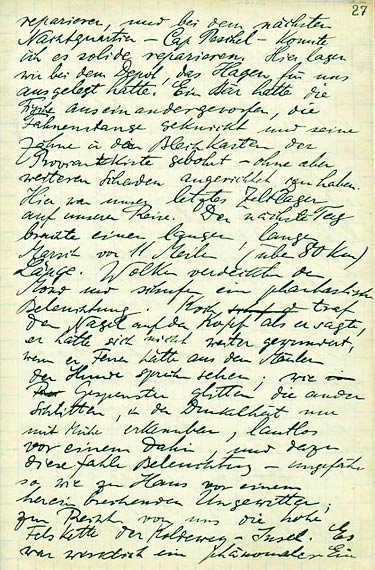 27
reparieren, und bei dem nächsten
Nachtquartier - Cap Peschel - konnte
ich es solide reparieren. Hier lagen
wir bei dem Depot, das Hagen für uns
ausgelegt hatte. Ein Bär hatte die
Kiste auseinandergeworfen, die
Fahnenstange geknickt und seine
Zähne in den Blechkasten der
Proviantkiste gebohrt - ohne aber
weiteren Schaden angerichtet zu haben.
Hier war unser letztes Zeltlager
auf unserer Reise. Der nächste Tag
brachte einen langen, langen
Marsch von 11 Meilen (über 80 km)
Länge. Wolken verdeckten den
Mond und schufen ein phantastische
Beleuchtung. Koch traf
den Nagel auf den Kopf als er sagte,
er hätte sich nicht weiter gewundert,
wenn er Feuer hätte aus den Mäulern
der Hunde sprühen sehen; wie
Gespenster glitten die anderen
Schlitten, in der Dunkelheit nur
mit Mühe erkennbar, lautlos
vor einem dahin, und dazu
diese fahle Beleuchtung - ungefähr
so wie zu Haus vor einem
hereinbrechenden Ungewitter;
zur Rechten von uns die hohe
Felskette der Koldewey-Insel. Es
war wirklich ein phänomaler Ein